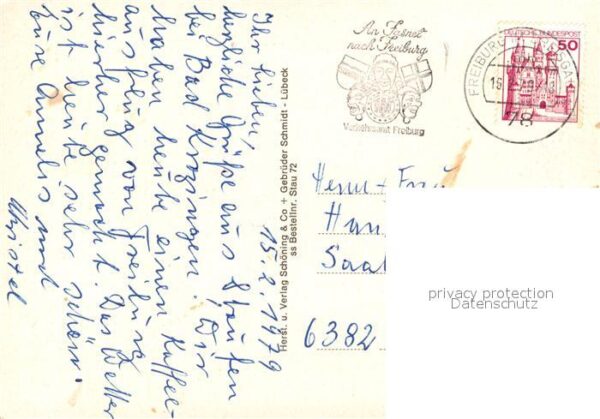 15.2.1979
Ihr Lieben!
herzliche Grüße aus Staufen
bei Bad Krozingen. Wir
haben heute einen Kaffee-
ausflug von Freiburg
hierher gemacht. Das Wetter
ist heute sehr schön.
Eure Annelis und
Christel
Herst. u. Verlag Schöning & Co + Gebrüder Schmidt - Lübeck
ss Bestellnr. Stau 72
An Fasnet
nach Freiburg
Verkehrsamt Freiburg
FREIBURG
15
79
78
DEUTSCHE BUNDESPOST
50
Herrn + Fr
Han
Saal
6382
privacy protection
Datenschutz